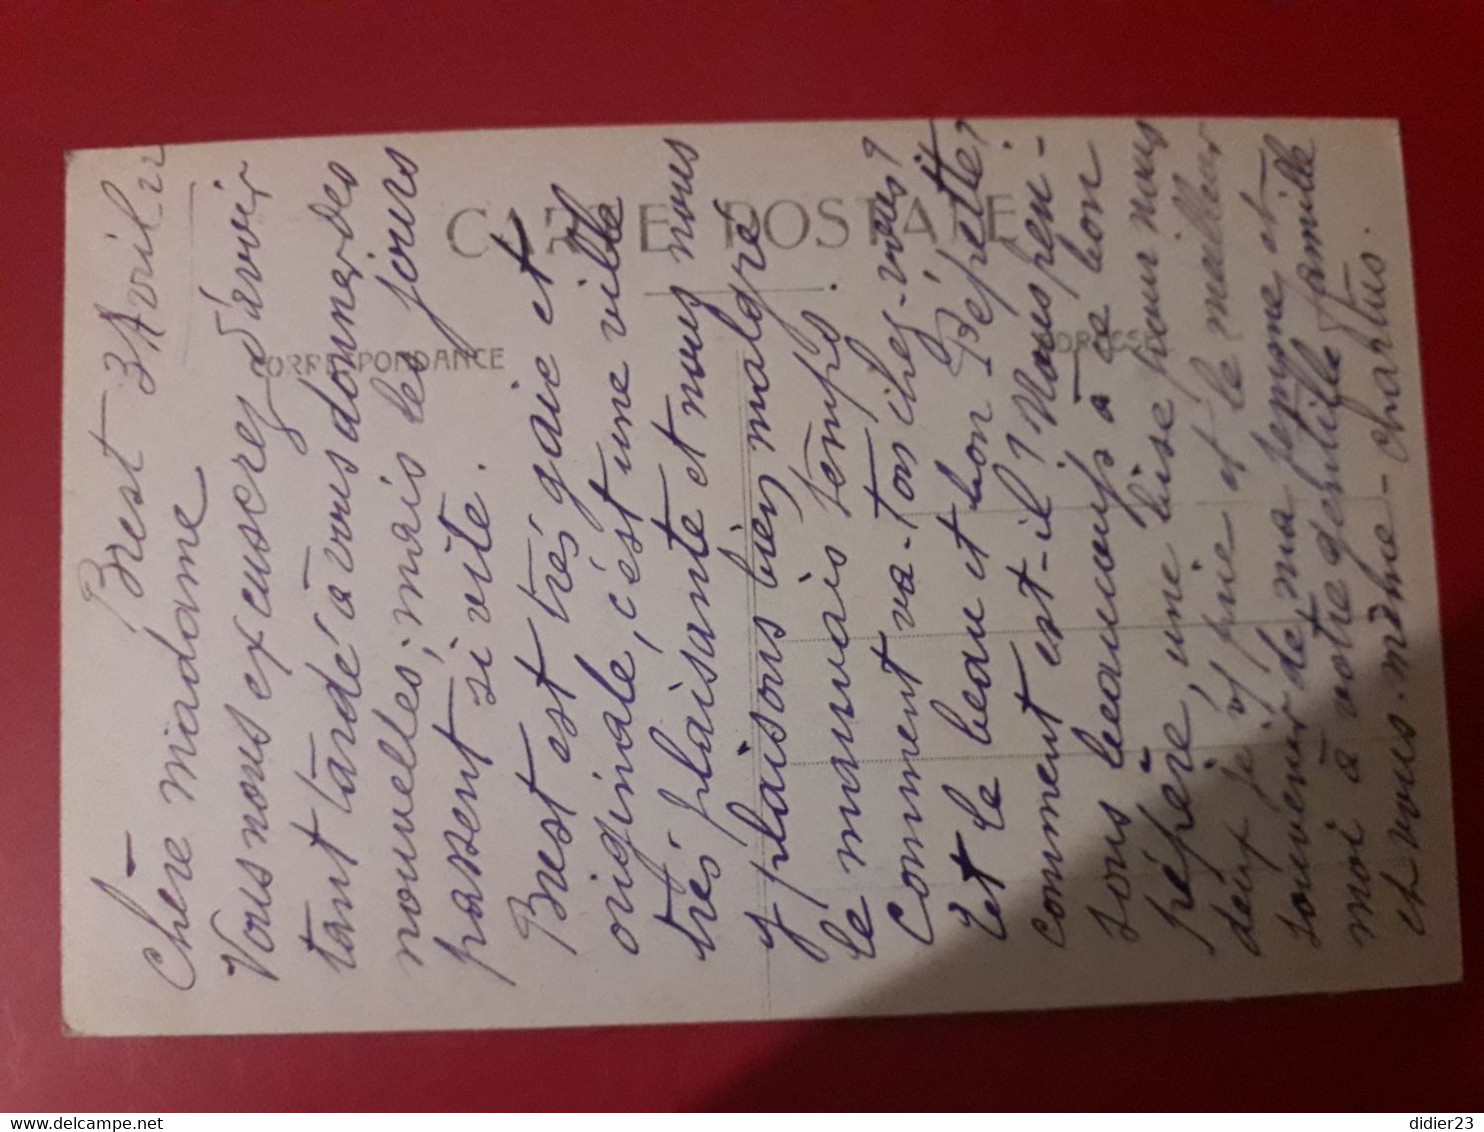 Brest 3 Avril 22
Chère madame
Vous nous excuserez d'avoir
tant tardé à vous donner des
nouvelles; mais les jours
passent si vite.
Brest est trés gaie et
originale, c'est une ville
trés plaisante et nous nous
y plaisons bien malgré
le mauvais temps.
Comment va-t-on chez-vous?
et le beau et bon Pépette?
comment est-il? Nous pen-
sons beaucoup à ce bon
pépère, une bise pour nous
deux je v/ prie et le meilleur
souvenir de ma femme et
moi à votre gentille famille
et vous-même-Chartus.
CARTE POSTALE
CORRESPONDANCE
ADRESSE
didier23